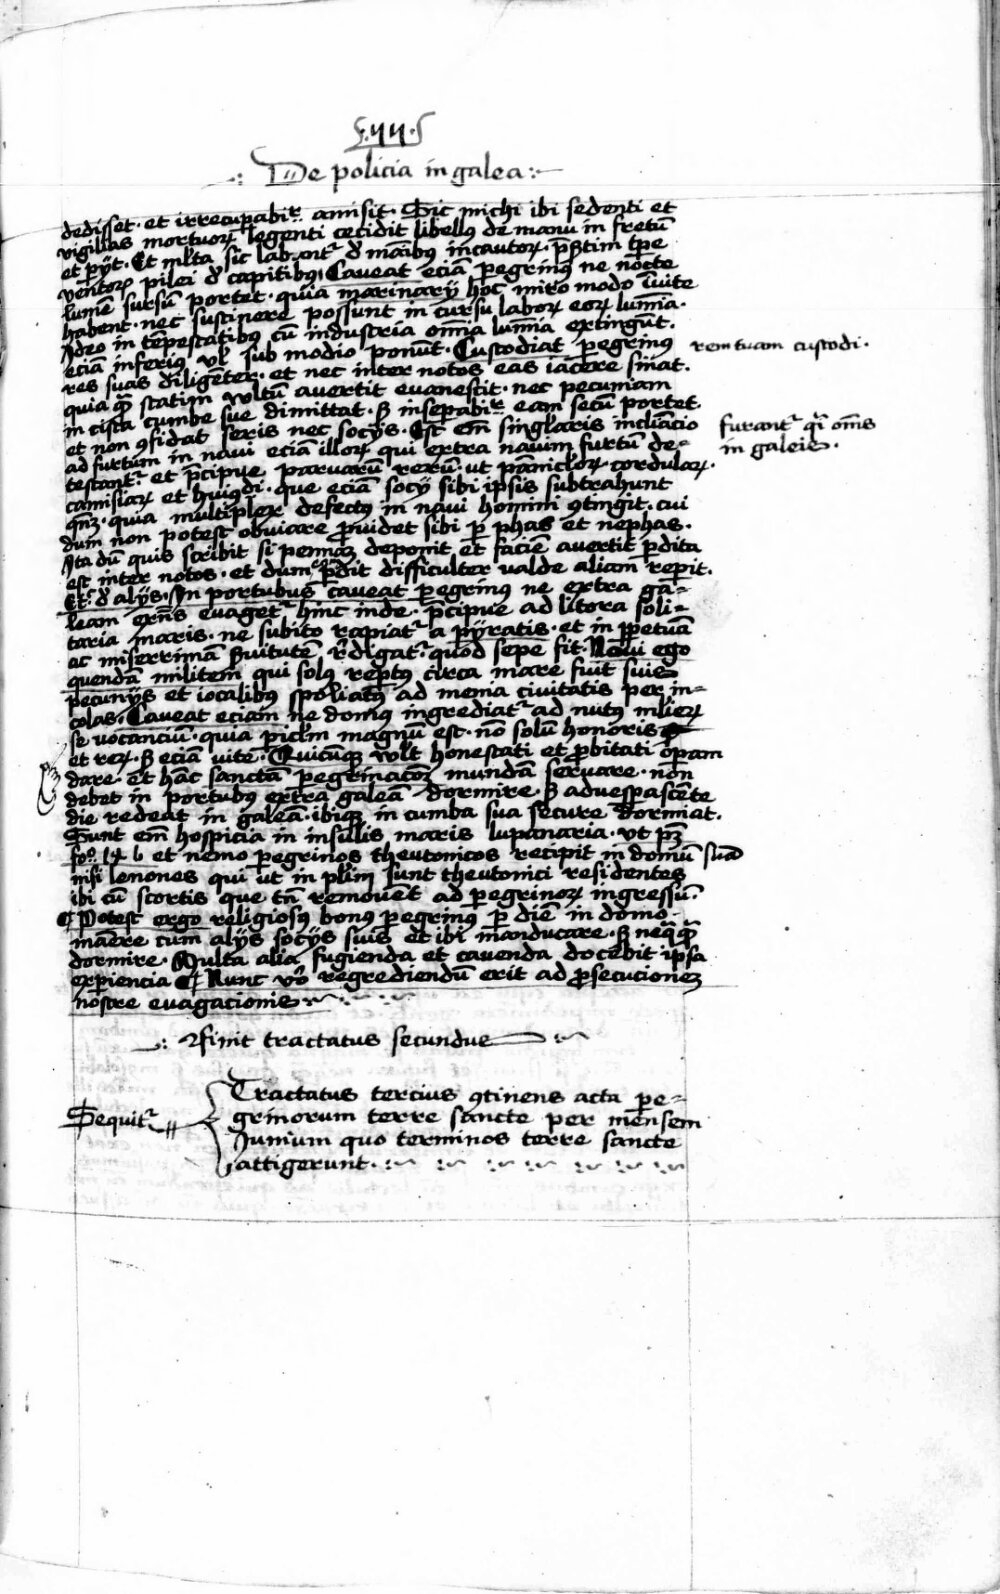 De policia in galea
dedisset · et irrecupabiꝉr amisit · Sic michi ibi sedenti et
vigilias mortuoꝝ legenti cecidit libellꝰ de manu in fretū
et pijt · Et mlta sic labunt᷑ d' maībꝰ incautoꝝ · p̄stim tp̄e
ventoꝝ pilei d' capitibꝰ · Caveat eciā pegrinꝰ ne nocte
lumē sursū portet · quia marinarij hoc miro modo īuite
habent · nec sustinere possunt in cursu laboꝝ eoꝝ lumīa ·
Ideo in tēpestatibꝰ cū industria oīa lumīa extingūt ·
eciā inferiꝰ vl' sub modio ponūt · Custodiat pegrinꝰ
res suas diligēter · et nec inter notos eas iacere sinat ·
quia q̄ statim vltū avertit evanescit · nec pecuniam
in cista cumbe sue dimittat · ꝫ insepabiꝉr eam secū portet ·
et non ꝯfidat seris nec socijs · Est em̄ singlaris inclīacio
ad furtum in navi eciam illoꝝ qui extra navim furtū de-
testant᷑ · et p̄cipue parvarū rerū · ut pānicloꝝ cordulaꝝ ·
camisiaꝝ et huiꝰdi · que eciam socij sibi ipsis subtrahunt
qn̄ꝫ · quia multiplex defectꝰ in navi homini ꝯtingit · cui
dum non potest obviare ꝓvidet sibi p phas et nephas ·
Ita dū quis scribit si pennā deponit et faciē avertit pdita
est inter notos · et dum pdit difficulter valde aliam repit ·
Et᷑ d' alijs · In portubus caveat pegrinꝰ ne extra ga-
leam exn̄s evaget᷑ hinc inde · p̄cipue ad litora soli-
taria maris · ne subito rapiat᷑ a pyratis · et in ppetuā
ac miserrimā ꝫvitutē r'digat᷑ · quod sepe fit · Novi ego
quendā militem qui solꝰ reptꝰ circa mare fuit suis
pecunijs et iocalibus spoliatꝰ ad menia civitatis per in-
colas · Caveat eciam ne domꝰ ingrediat᷑ ad nutꝰ mlieꝝ
se vocanciū · quia piclm magnum est · nō solū honoris
et reꝝ · ꝫ eciam vite · Quicūqꝫ vlt honestati et ꝓbitati opam
dare · et hāc sanctā pegrinacoꝫ mundā servare · non
debet in portubꝰ extra galeā dormire · ꝫ advespascēte
die redeat in galeā · ibiqꝫ in cumba sua secure dormiat ·
Sunt em̄ hospicia in insulis maris lupanaria · vt ptꝫ
et nemo pegrinos theutonicos recipit in domū suā
nisi lenones qui ut in plim sunt theutonici residentes
ibi cū scortis que tn̄ removent ad pegrinoꝝ ingressū ·
¶ Potest ergo religiosꝰ bonꝰ pegrinꝰ p diē in domo
manere cum alijs socijs suis et ibi manducare · ꝫ neqꝫ
dormire · Multa alia fugienda et cavenda docebit ipsa
experiencia ¶ Nunc vo' regrediendū erit ad ꝓsecutionem
nostre evagacionis
rem tuam custodi ·
furant᷑ qi om̄s
in galeis ·
Finit tractatus secundus
Sequit᷑
Tractatus tercius ꝯtinens acta pe-
grinorum terre sancte per mensem
Junium quo terminos terre sancte
attigerunt ·